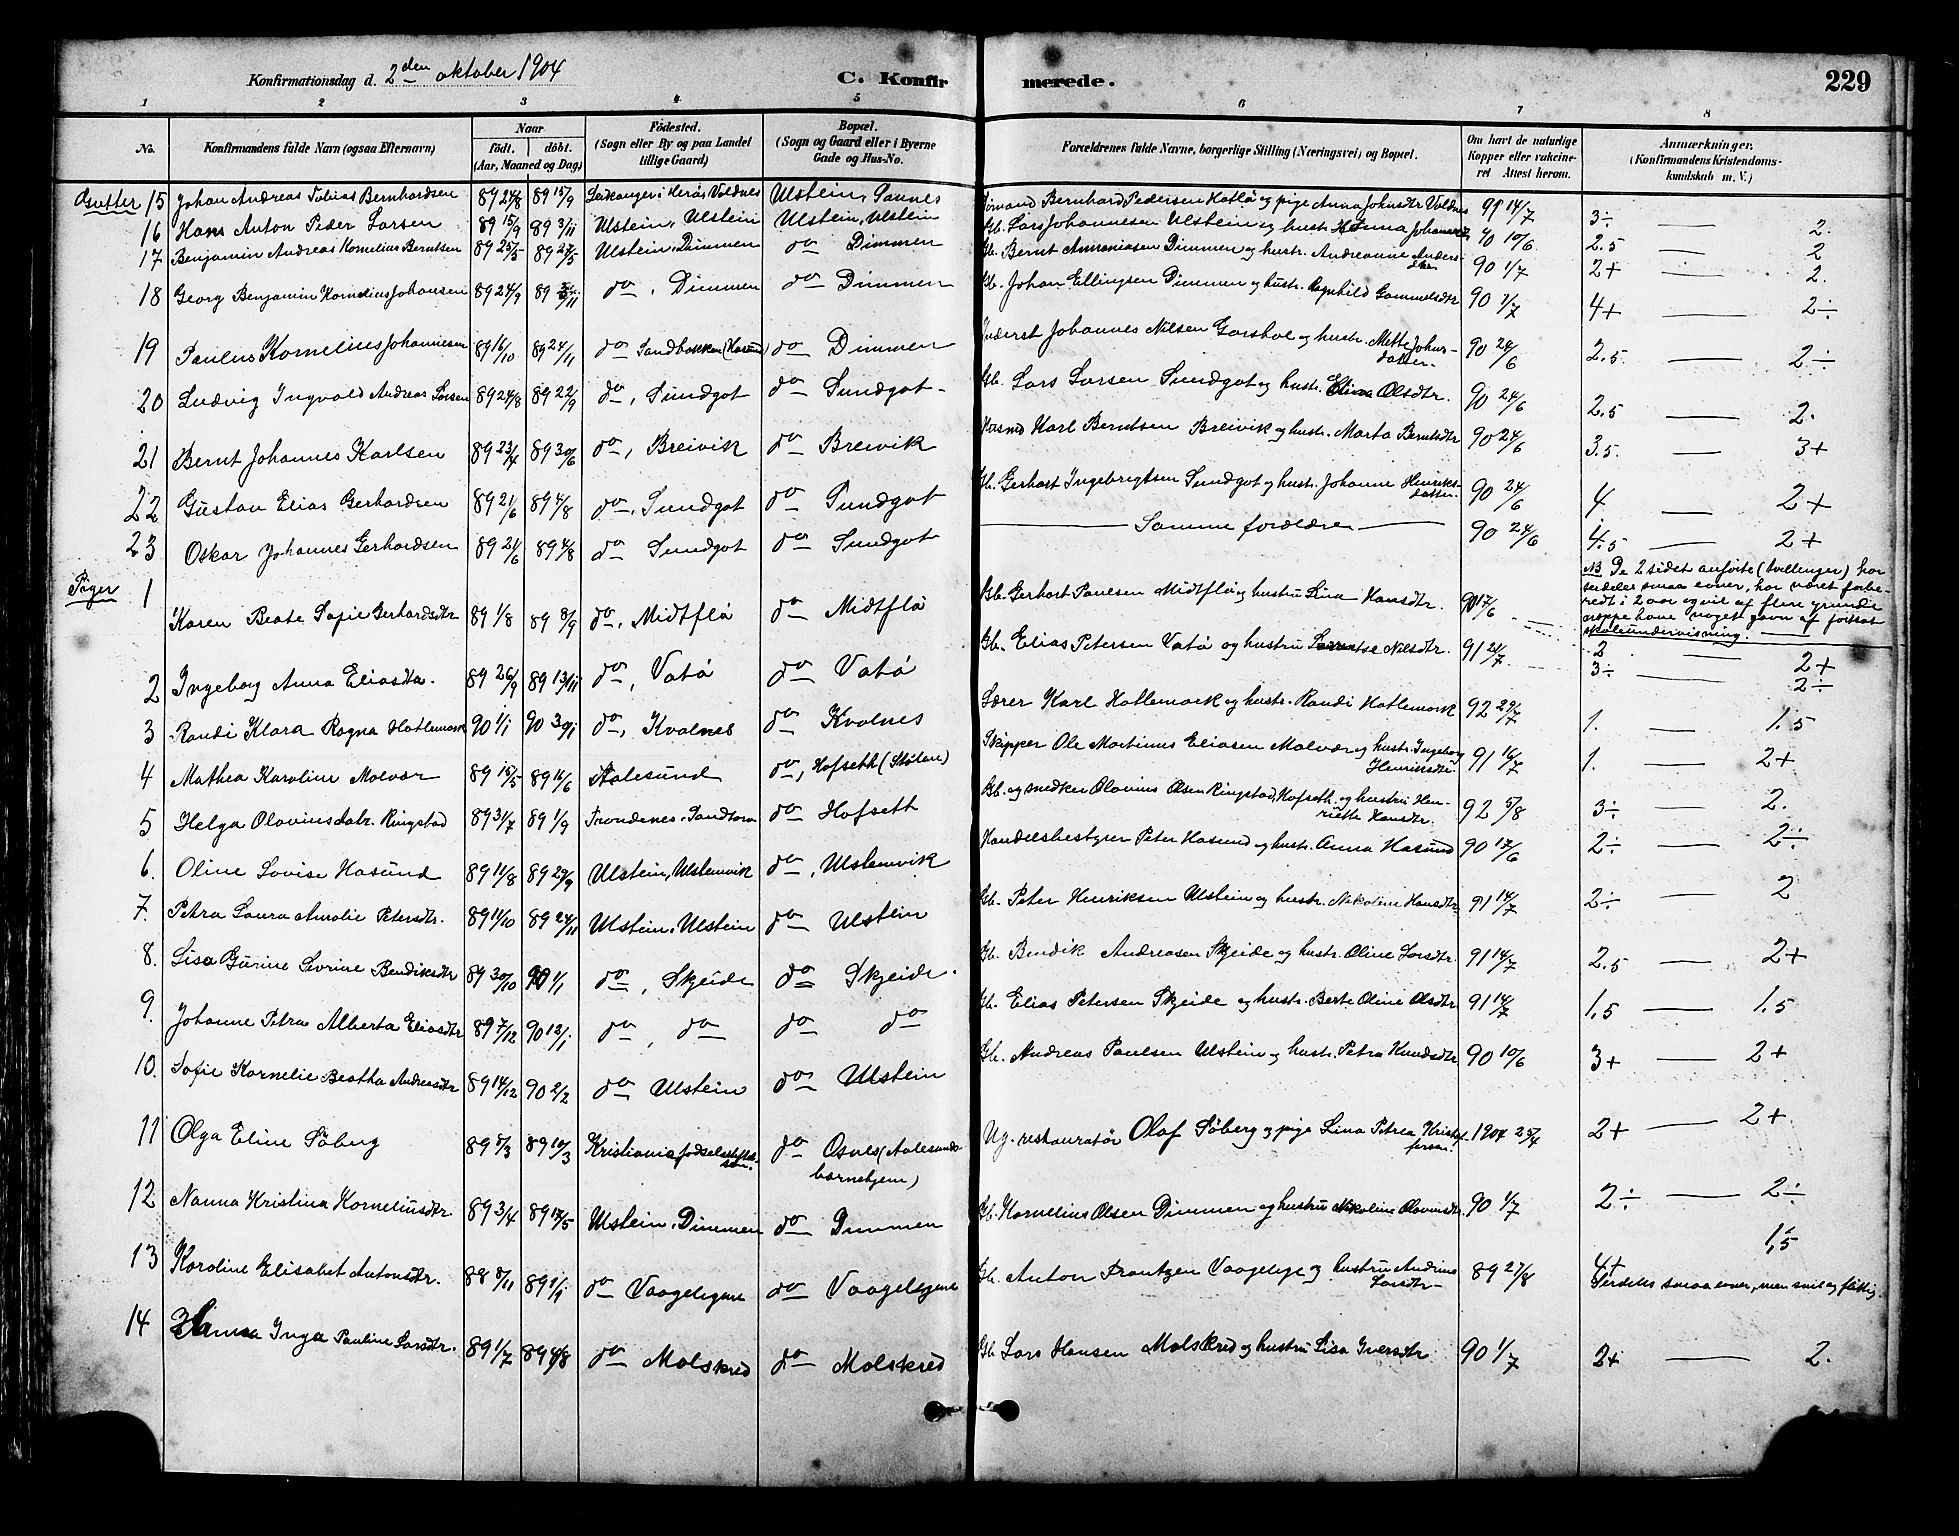 Konfirmationsdag d. 2den oktober 1904
C. Konfirmerede.
229
1 2 3 4 5 6 7 8
No.
Konfirmandens fulde Navn (ogsaa Efternavn)
Naar
født. døbt.
(Aar, Maaned og Dag)
Fødested.
(Sogn eller By og paa Landet
tillige Gaard)
Bopæl.
(Sogn og Gaard eller i Byerne
Gade og Hus-No.
Forældrenes fulde Navne, borgerlige Stilling (Næringsvei) og Bopæl.
Om havt de naturlige
Kopper eller vakcine-
ret Attest herom.
Anmærkninger.
(Konfirmandens Kristendoms-
kundskab m. V.)
Gutter 15 Johan Andreas Tobias Bernhardsen 89 24/8 89 15/9 Leikanger i Herø, Voldnes Ulstein, Saunes Bernhard Pedersen Hatlø og pige Anna Johnsdtr Voldnes 14/7 3÷ — 2.
16 Hans Anton Peder Larsen 89 15/9 89 3/11 Ulstein, Ulstein Ulstein, Ulstein Gb. Lars Johannesen Ulstein og hustr. Johansdtr 90 10/6 2.5 — 2
17 Benjamin Andreas Kornelius Berntsen 89 25/5 89 27/5 Ulstein, Dimmen do Dimmen Gb. Bernt Ananiasen Dimmen og hustr. Andreanne Anders-
dtr. 90 1/7 2+ — 2.
18 Georg Benjamin Kornelius Johansen 89 24/9 89 /11 do, Dimmen do Dimmen Gb. Johan Ellingsen Dimmen og hustr. Ragnhild Gammelsdtr 90 1/7 4+ — 2÷
19 Paulus Kornelius Johannesen 89 16/10 89 24/11 do Sandbakken (Hasund) do Dimmen Inderst Johannes Nilsen Garshol og hustr. Mette Johns-
datter. 90 24/6 2.5. — 2÷
20 Ludvig Ingvald Andreas Larsen 89 24/8 89 22/9 do, Sundgot do Sundgot Gb. Lars Larsen Sundgot og hustr. Elina Olsdtr. 90 24/6 2.5 — 2.
21 Bernt Johannes Karlsen 89 23/4 89 30/6 do, Breivik do Breivik Karl Berntsen Breivik og hustr. Marta Berntsdtr 90 24/6 3.5. — 3+
22 Gustav Elias Gerhardsen 89 21/6 89 4/8 do, Sundgot do Sundgot Gb. Gerhart Ingebrigtsen Sundgot og hustr. Johanne Henriks-
datter. 90 24/6 4 — 2+
23 Oskar Johannes Gerhardsen 89 21/6 89 4/8 do Sundgot do Sundgot — Samme forældre — 90 24/6 4.5 — 2+
NB De 2 sidst anførte (tvillinger) har
særdeles smaa evner, har været forbe-
redt i 2 aar og vil af flere grunde
neppe have noget gavn af fortsat
skoleundervisning.
Piger 1 Karen Beate Sofie Gerhardsdtr 89 1/8 89 8/9 do, Midtflø do Midtflø Gb. Gerhart Paulsen Midtflø og hustru Lina Hansdtr. 90 17/6 2 — 2+
2 Ingeborg Anna Eliasdtr. 89 26/9 89 13/11 do, Vatø do Vatø Gb. Elias Petersen Vatø og hustru Larentse Nilsdtr. 91 21/7 3÷ — 2÷
3 Randi Klara Ragna Hatlemark 90 1/1 90 30/1 do, Kvalnes do Kvalnes Lærer Karl Hatlemark og hustr. Randi Hatlemark 92 29/7 1. — 1.5
4 Mathea Karoline Molvær 89 15/5 89 16/6 Aalesund do, Hofseth (Stølane) Skipper Ole Martinus Eliasen Molvær og hustr. Ingeborg
Henriksdtr. 91 16/7 1. — 2+
5 Helga Olavinusdatr. Ringstad 89 31/7 89 1/9 Trondenes, Sandtorv do Hofseth Gb. og snedker Olavinus Olsen Ringstad, Hofseth og hustru Hen-
riette Hansdtr. 92 5/8 3÷ — 2.
6. Oline Lovise Hasund 89 11/8 89 29/9 Ulstein, Ulsteinvik do, Ulsteinvik Handelsbestyrer Peter Hasund og hustr. Anna Hasund 90 17/6 2÷ — 2÷
7. Petra Laura Amalie Petersdtr. 89 11/10 89 24/11 Ulstein, Ulstein do Ulstein Gb. Peter Henriksen Ulstein og hustr. Nikoline Hansdtr. 91 14/7 2÷ — 2
8. Lisa Gurine Severine Bendiksdtr 89 30/10 90 1/1 do, Skjeide do Skjeide. Gb. Bendik Andreasen Skjeide og hustr. Oline Larsdtr. 91 14/7 2.5 — 2+
9. Johanne Petra Alberta Eliasdtr 89 7/12 90 12/1 do, do do do Gb. Elias Petersen Skjeide og hustr. Berte Oline Olsdtr 91 14/7 1,5 — 1,5
10. Sofie Kornelie Beatha Andreasdtr 89 14/12 90 2/2 do Ulstein do Ulstein Gb. Andreas Paulsen Ulstein og hustr. Petra Knudsdtr 90 10/6 3+ — 2+
11 Olga Eline Søberg 89 5/3 89 10/3 Kristiania fødselsstiftel-
sen. do Osnes (Aalesunds
barnehjem) Ug. restauratør Olaf Søberg og pige Lina Petrea Kristof-
fersen. 1904 25/4 2+ — 2+
12 Nanna Kristina Korneliusdtr 89 3/4 89 17/5 Ulstein, Dimmen do Dimmen Gb. Kornelius Olsen Dimmen og hustru Nikoline Olavusdtr. 90 1/7 2÷ — 2÷
13 Karoline Elisabet Antonsdtr. 88 8/11 89 1/1 do Vaagelegane do Vaagelegane Gb. Anton Frantzen Vaagelege og hustru Andrine
Larsdtr — 89 27/8 4+ 1,5
Særdeles smaa evner, men snil og flittig.
14 Inga Pauline Larsdtr. 89 1/7 89 4/8 do Molskred do Molskred Gb. Lars Hansen Molskred og hustru Lisa Iversdtr 90 1/7 2+ — 2.